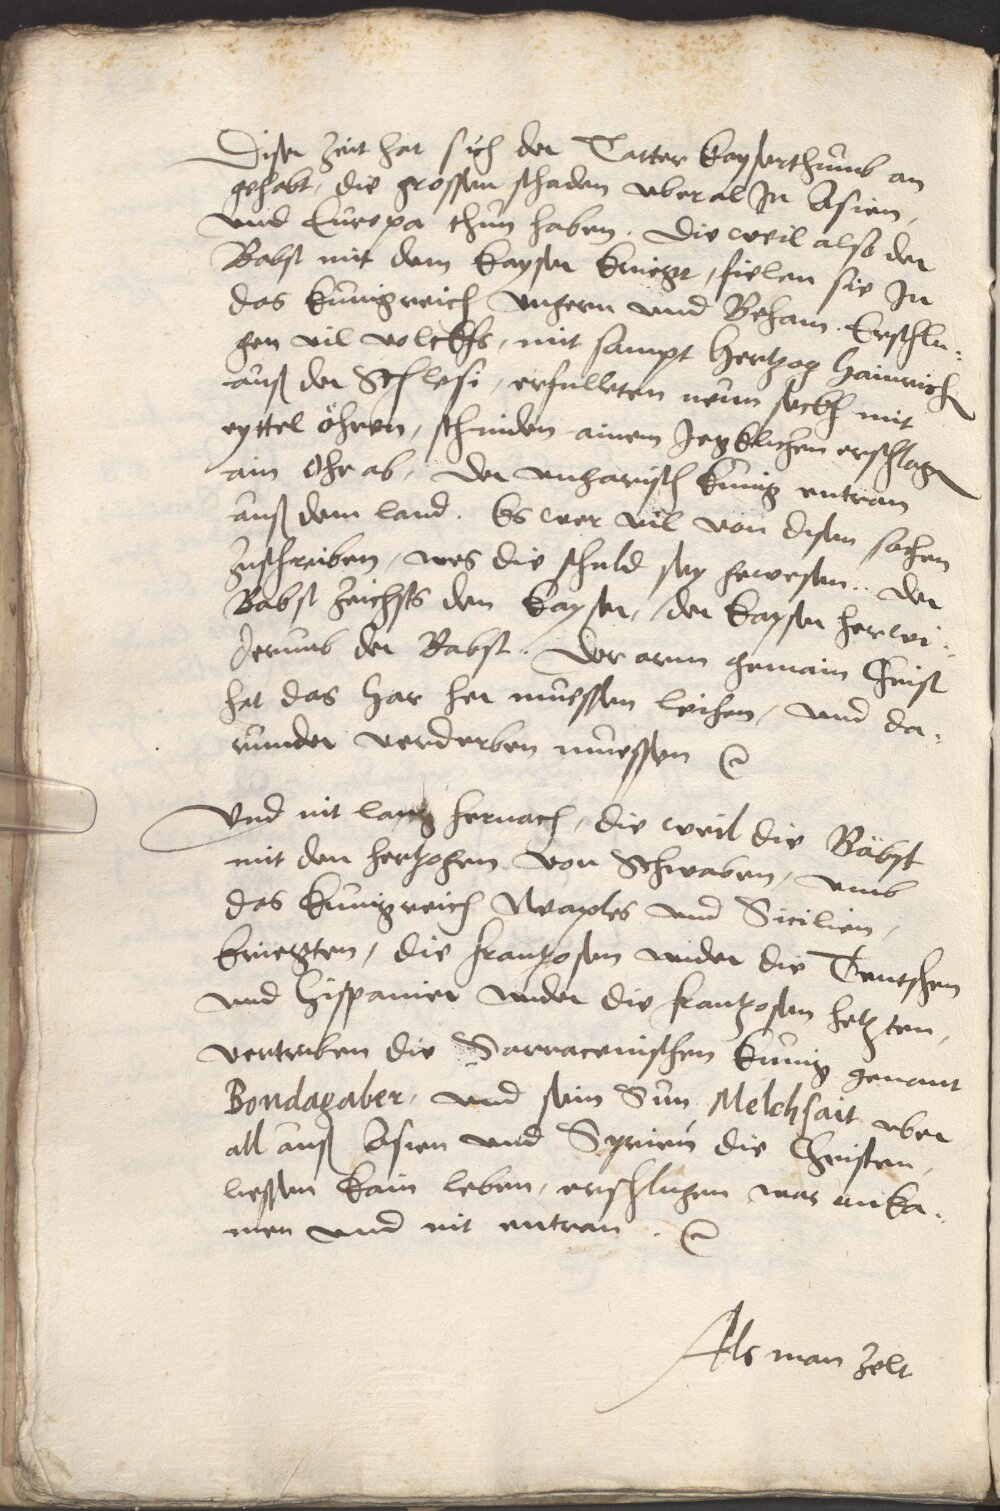 Diser Zeit hat sich der Tatter kayserthumb an
gehabt, die grossen schaden uberal Jn Asien,
und Europa thun haben. Die weil also der
Babst mit dem kayser kriegt, fielen sie Jn
das künigreich Ungern und Beham. Erschlu-
gen vil volckhs, mit sampt Hertzog Hainrich
auß der Schlesi, erfulleten neun seckh mit
eyttel öhren, schniden ainem Jegklichen erschlagen
ain Ohr ab, der ungarisch künig entran
auß dem land. Es wer vil von disen sachen
zuschreiben, wes die schuld sey gewesen. Der
Babst zeichts den kayser, der kayser herwi-
derumb den Babst. Der arm gemain Christ
hat das har her müessen leihen, und da-
runder verderben müessen
Und nit lang hernach, die weil die Bäbst
mit den hertzogen von Schwaben, umb
das künigreich Neaples und Sicilien,
kriegten, die frantzosen wider die Teutschen
und Hispanier wider die frantzosen hetzten,
vertriben die Sarracenischen künig genant
Bondagaber, und sein Sun Melchsait uber
all auß Asien und Syrien die Christen,
liessen kain leben, erschlugen was anka-
men und nit entran.
Als man zelt